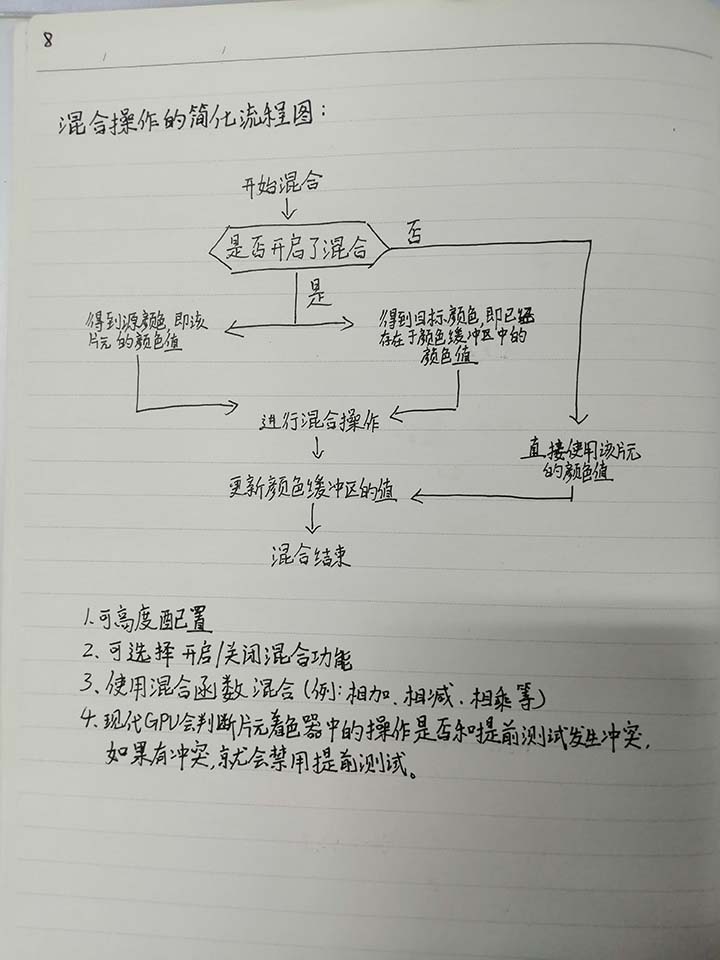 8
混合操作的简化流程图:
开始混合
是否开启了混合
否
是
得到源颜色,即该
片元的颜色值
得到目标颜色,即已经
存在于颜色缓冲区中的
颜色值
进行混合操作
直接使用该片元
的颜色值
更新颜色缓冲区的值
混合结束
1.可高度配置
2.可选择开启/关闭混合功能
3.使用混合函数混合(例:相加、相减、相乘等)
4.现代GPU会判断片元着色器中的操作是否和提前测试发生冲突,
如果有冲突,就会禁用提前测试。